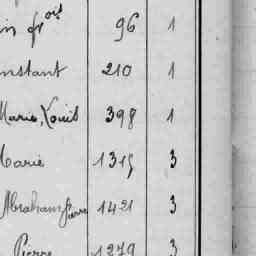 in frois 96 1
nstant 210 1
Marie, Louis 398 1
Marie 1315 3
Abraham Pierre 1421 3
Pierre 1279 3